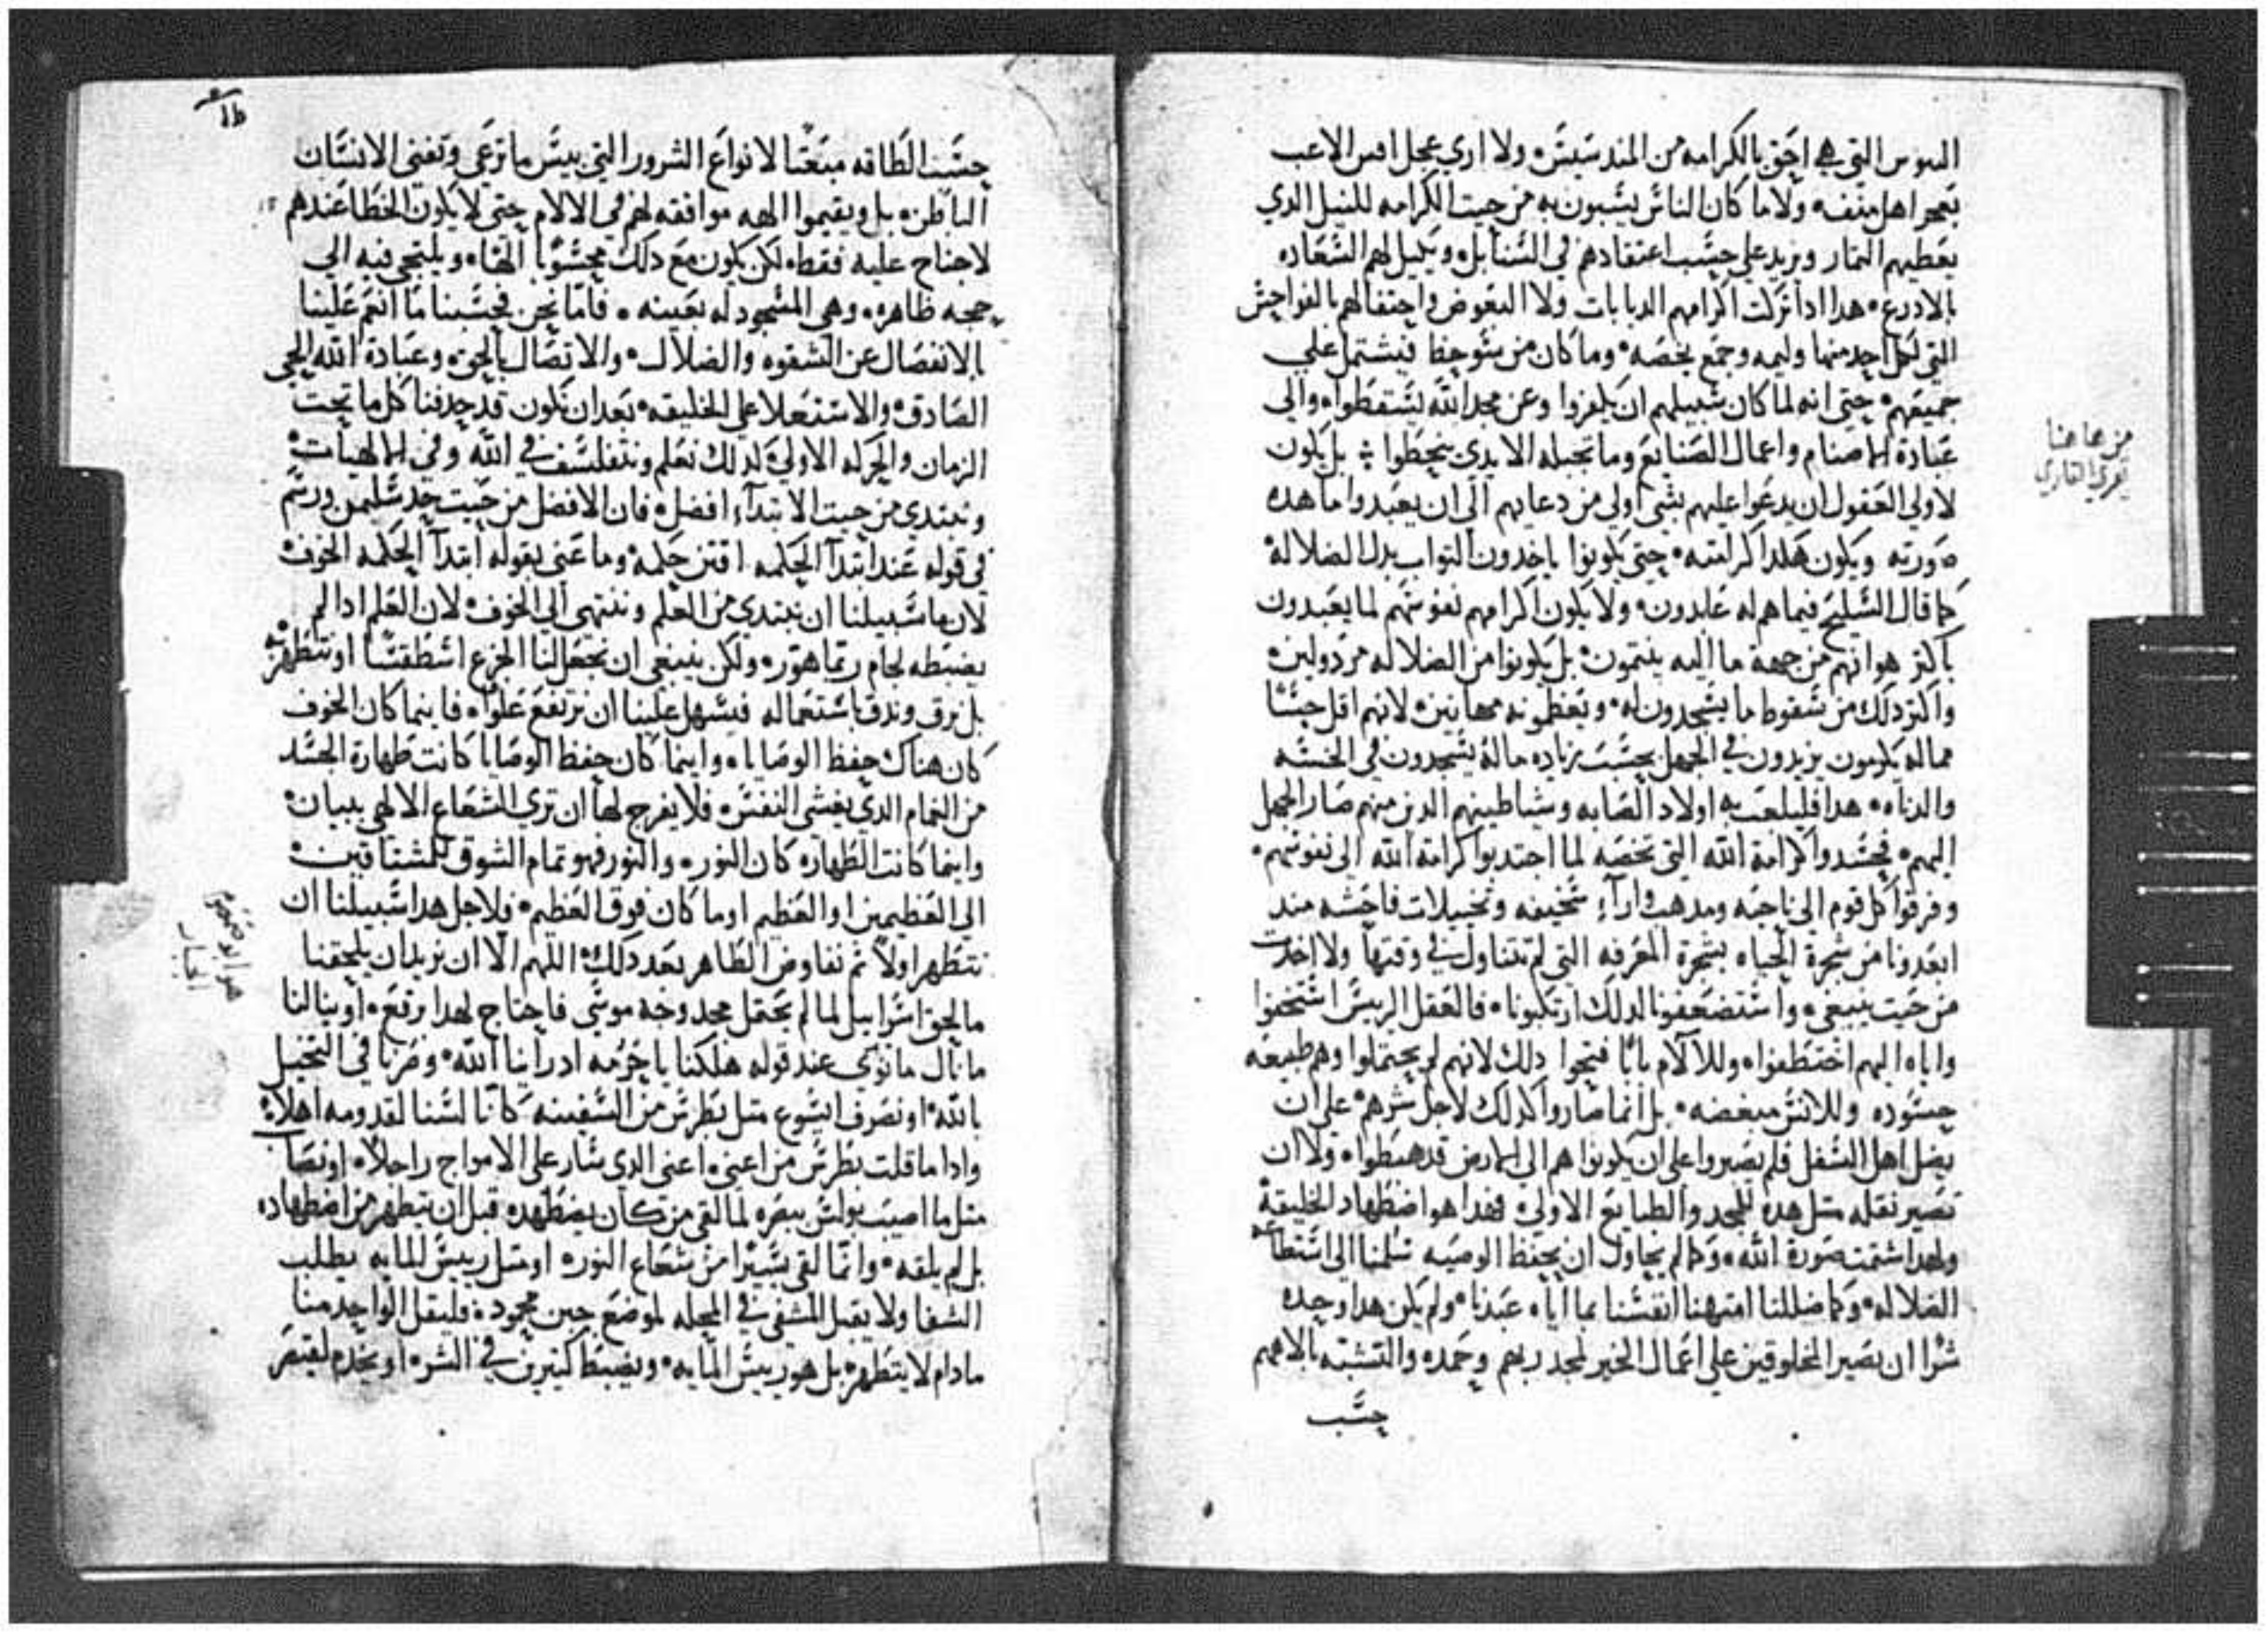 التي هي احق بالكرامه من المندسيس ولا اري عجل افيس الاعب
اهل منف ولا ما كان الناس يسبون به من حيت الكرامه للنيل الدي
يعطيهم التمار ويزيد علي حسب اعتقادهم في السنابل ويكيل لهم السعاده
بالادرع هدا ادا تركت اكرامهم الدبابات ولا البغوض واحتفالهم بالفواحش
التي لكل احد منها وليمه وجمع يخصه وما كان من فيشتمل علي
جميعهم حتي انه لما كان سبيلهم ان يكفروا وعن مجد الله يستقطوا والي
عبادة الاصنام واعمال الصنايع وما تجبله الايدي ينحطوا بل يكون
لاولي العقول ان يدعوا عليهم بشي اولي من دعايهم الي ان يعبدوا ما هده
صورته ويكون هكدا كرامته حتي يكونوا ياخدون التواب بدل الضلاله
كما قال السليح فيما هم له عابدون ولا يكون اكرامهم نفوسهم لما يعبدون
باكتر هوانهم من جهة ما اليه ينتمون بل يكونوا من الضلاله مردولين
واكتر دلك من سقوط ما يسجدون له ويعظمونه مهانين لانهم اقل حسا
مما له يكرمون يزيدون في الجهل بحسب زياده ما له يسجدون في الخسه
والدناه هدا فليلعب به اولاد الصابه وشياطينهم الدين منهم صار الجهل
اليهم فحسدوا كرامة الله التي تخصه لما اجتدبوا كرامة الله الي نفوسهم
وفرقوا كل قوم الي ناحيه ومدهب وارآء سخيفه وتخييلات فاحشه مند
ابعدونا من شجرة الحياه بشجرة المعرفه التي لم تتناول في وقتها ولا اخدت
من حيت ينبغي واستضعفونا لدلك ارتكبونا فالعقل الرييس استخفوا
واياه اليهم اختطفوا وللالام بابا فتحوا دلك لانهم لم يحتملوا وهم طبيعه
حسوده وللانس مبغضه بل انما صاروا كدلك لاجل شرهم علي ان
يضل اهل السفل فلم يصبروا علي ان يكونوا هم الي الارض قد هبطوا ولا ان
تصير نقله متل هده للمجد والطبايع الاولي فهدا هو اضطهاد الخليقة
ولهدا شتمت صورة الله وكما لم نحاول ان نحفظ الوصيه سلمنا الي استطاعة
الضلاله وكما ضللنا امتهنا انفسنا بما اياه عبدنا ولم يكن هدا وحده
شرا ان يصير المخلوقين علي اعمال الخير لمجد ربهم وحمده والتشبه بالاههم
حسب
من هاهنا
يقري القاري
حسب الطاقه مبعتا لانواع الشرور التي بيس ما ترعي وتفني الانسان
الباطن بل ويقيموا الهه موافقه لهم في الالام حتي لا يكون الخطا عندهم
لا جناح عليه فقط لكن يكون مع دلك محسوبا الها ويلتجي فيه الي
حجه ظاهره وهي المسجود له بعينه فاما نحن فحسبنا ما انعم علينا
بالانفصال عن الشقوه والضلال والاتصال بالحق وعبادة الله الحي
الصادق والاستعلا علي الخليقه بعد ان نكون قد جدفنا كل ما تحت
الزمان والحركه الاولي لدلك نعلم ونتفلسف في الله وفي الالهيات
ونبتدي من حيت الابتدآء افضل فان الافضل من حيت حد سليمن ورسم
في قوله عند ابتدآ الحكمه اقتن حكمه وما عني بقوله ابتدآ الحكمه الخوف
لان ما سبيلنا ان نبتدي من العلم وننتهي الي الخوف لان العلم ادا لم
يضبطه لجام ربما هور ولكن ينبغي ان نجعل لنا الجزع اسطقسا او نتطهر
بل نرق وندق باستعماله فيسهل علينا ان نرتفع علوا فاينما كان الخوف
كان هناك حفظ الوصايا واينما كان حفظ الوصايا كانت طهارة الجسد
من الغمام الدي يغشي النفس فلا يفرج لها ان تري الشعاع الالهي ببيان
واينما كانت الطهاره كان النور والنور فهو تمام الشوق للمشتاقين
الي العظيمين او العظيم او ما كان فوق العظيم فلاجل هدا سبيلنا ان
نتطهر اولا تم نفاوض الطاهر بعد دلك اللهم الا ان نريد ان يلحقنا
ما لحق اسراييل لما لم يحتمل مجد وجه موسي فاحتاج لهدا برقع او ينالنا
ما نال مانوي عند قوله هلكنا يا حرمه اد راينا الله وصرنا في التخيل
بالله او نصرف ايسوع متل بطرس من السفينه كانا لسنا لقدومه اهلا
وادا ما قلت بطرس من اعني اعني الدي سار علي الامواج راجلا او نصاب
متل ما اصيب بولس ببصره لما لقي من كان يضطهده قبل ان يتطهر من اضطهاده
بل لم يلقه وانما لقي يسيرا من شعاع النور او متل رييس المايه يطلب
الشفا ولا يقبل المشفي في المحله لموضع جبن محمود فليقل الواحد منا
مادام لا يتطهر بل هو رييس المايه ويضبط كتيرين في الشر او يخدم لقيصر